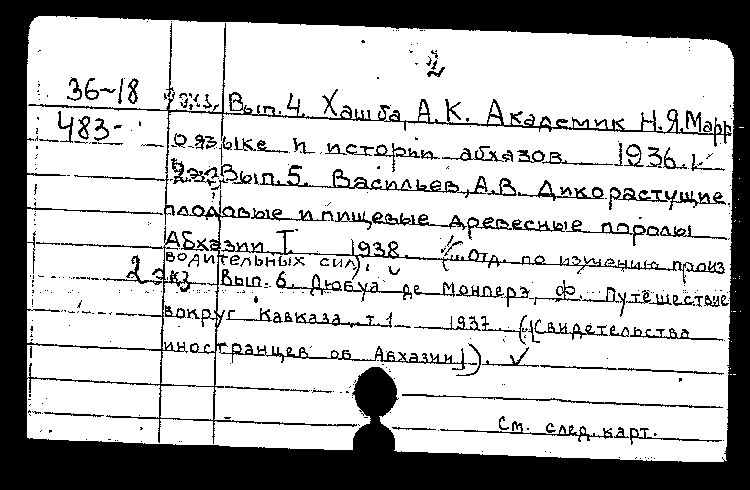 2
36-18 2 экз. Вып. 4. Хашба, А.К. Академик Н.Я.Марр
483- о языке и истории абхазов. 1936.
2 экз Вып. 5. Васильев, А.В. Дикорастущие
плодовые и пищевые древесные породы
Абхазии I. 1938. (...Отд. по изучению произ
водительных сил).
2 экз Вып. 6. Дюбуа де Монперэ, Ф. Путешествие
вокруг Кавказа, т. 1 1937. ([Свидетельства
иностранцев об Абхазии]).
См. след. карт.